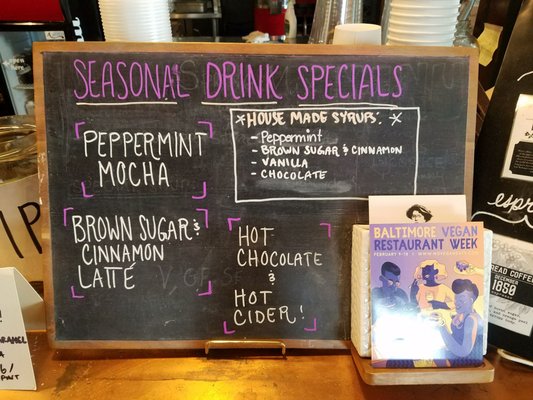 SEASONAL DRINK SPECIALS
PEPPERMINT
MOCHA
BROWN SUGAR &
CINNAMON
LATTÉ
*HOUSE MADE SYRUPS:*
- PEPPERMINT
- BROWN SUGAR & CINNAMON
- VANILLA
- CHOCOLATE
HOT
CHOCOLATE
&
HOT
CIDER!
BALTIMORE VEGAN
RESTAURANT WEEK
1850